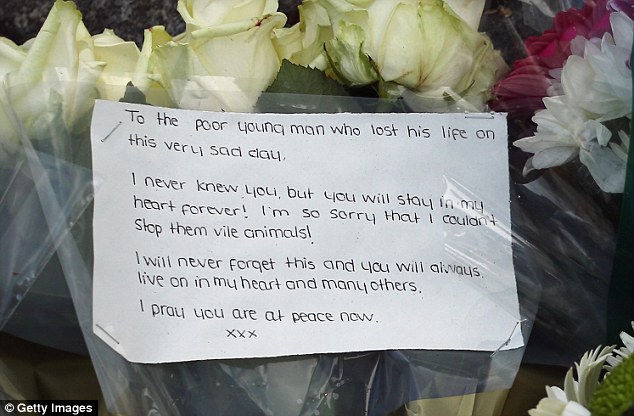 To the poor young man who lost his life on
this very sad day.
I never knew you, but you will stay in my
heart forever! I'm so sorry that I couldn't
stop them vile animals!
I will never forget this and you will always
live on in my heart and many others.
I pray you are at peace now.
xxx
© Getty Images